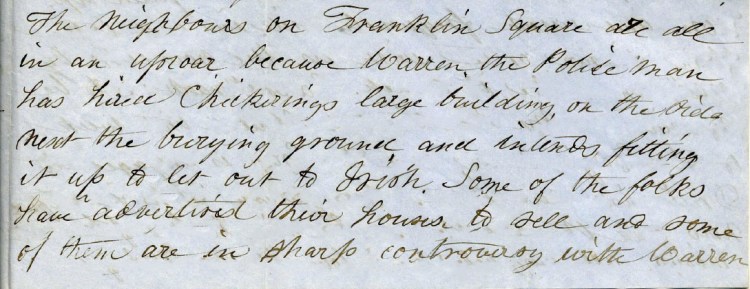 The neighbours on Franklin Square are all
in an uproar because Warren the Police man
has hired Chickerings large building, on the side
next the burying ground and intends fitting
it up to let out to Irish. Some of the folks
have advertised their houses to sell and some
of them are in sharp controversy with Warren